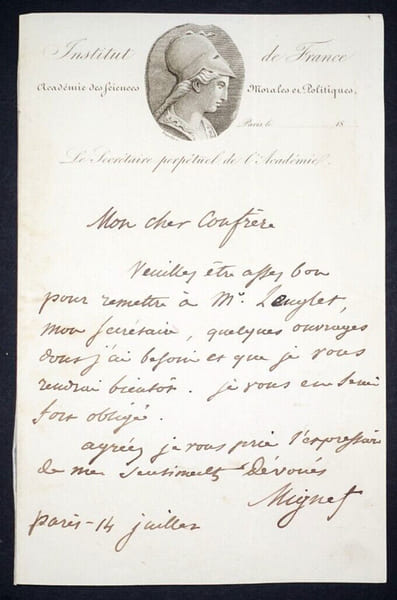 Institut de France
Académie des Sciences Morales et Politiques,
Paris le 18
Le Secrétaire perpétuel de l'Académie.
Mon cher Confrère
Veuillez être assez bon
pour remettre à Mr.
mon secrétaire, quelques ouvrages
dont j'ai besoin et que je vous
rendrai bientôt. je vous en serai
fort obligé.
agréez je vous prie l'expression
de mes sentiments dévoués
Mignet
paris - 14 juillet